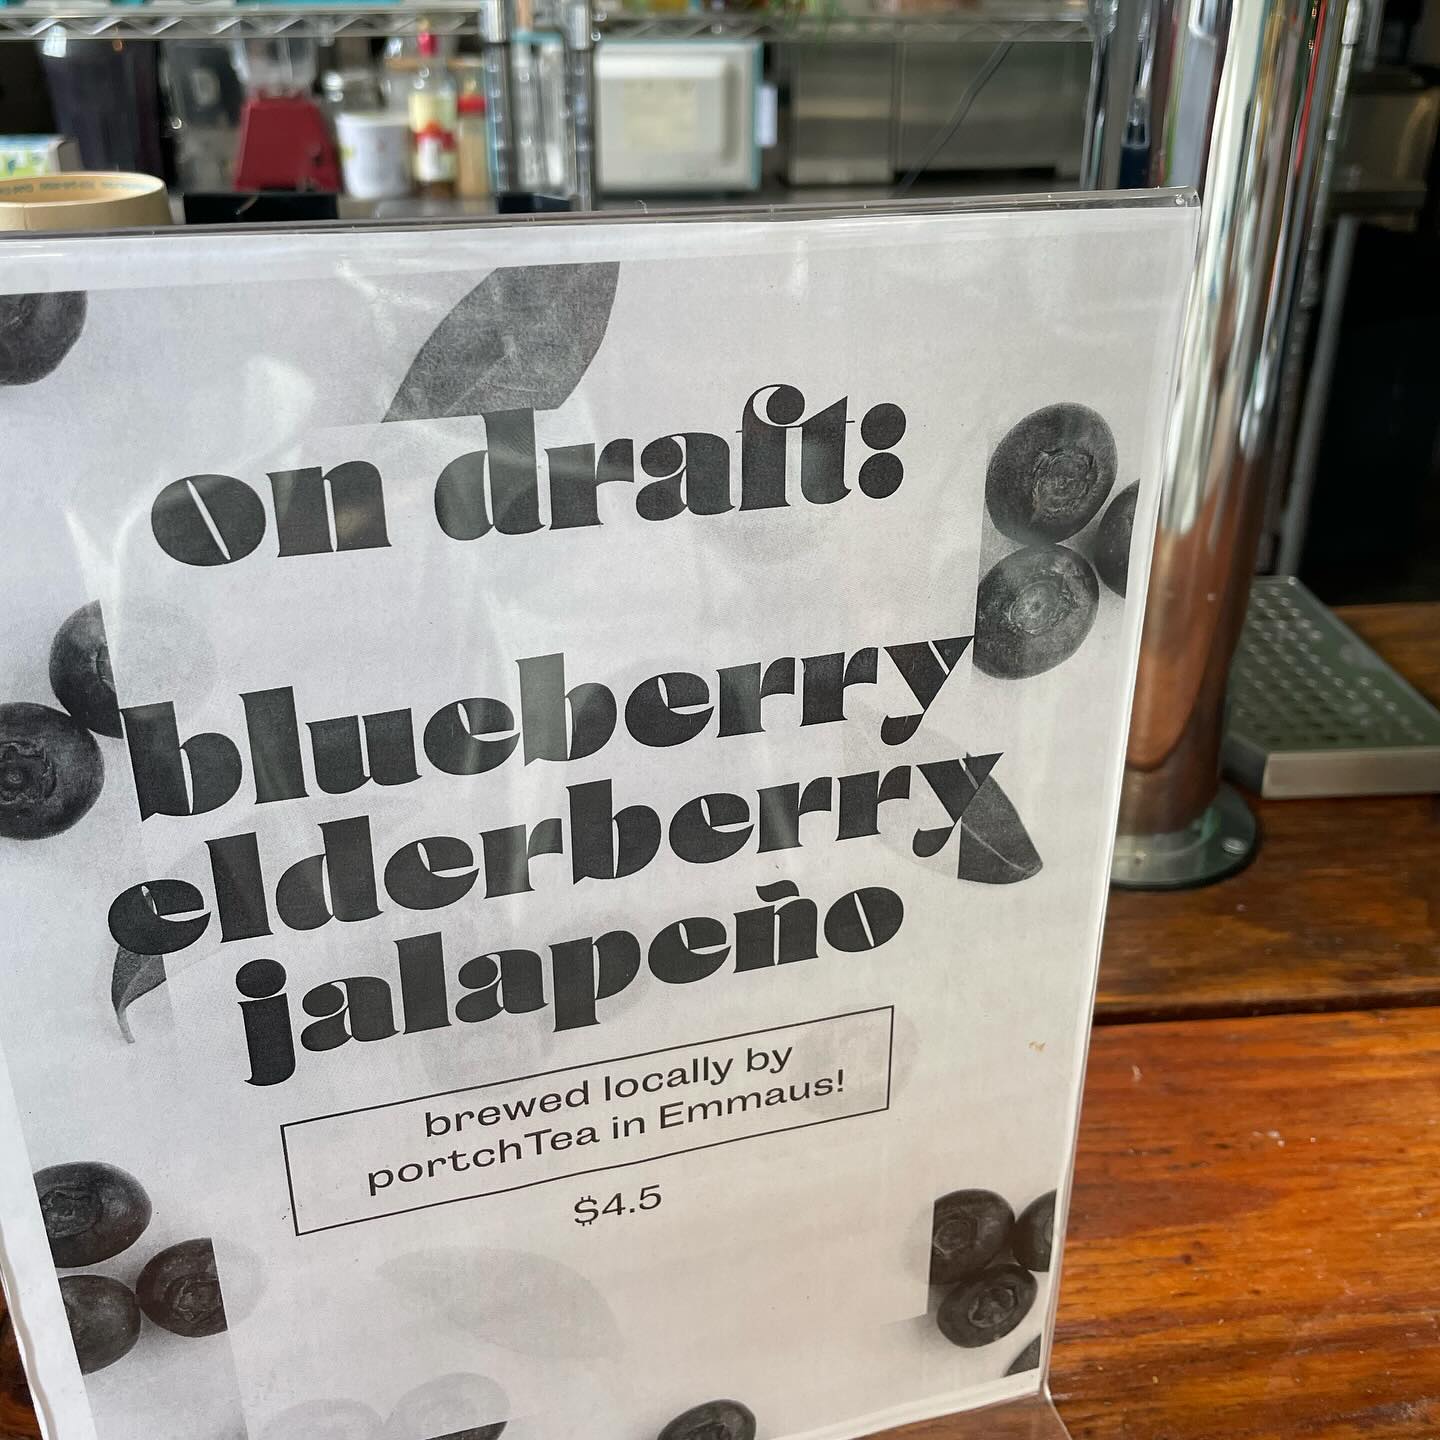 on draft:
blueberry
elderberry
jalapeño
brewed locally by
portchTea in Emmaus!
$4.5